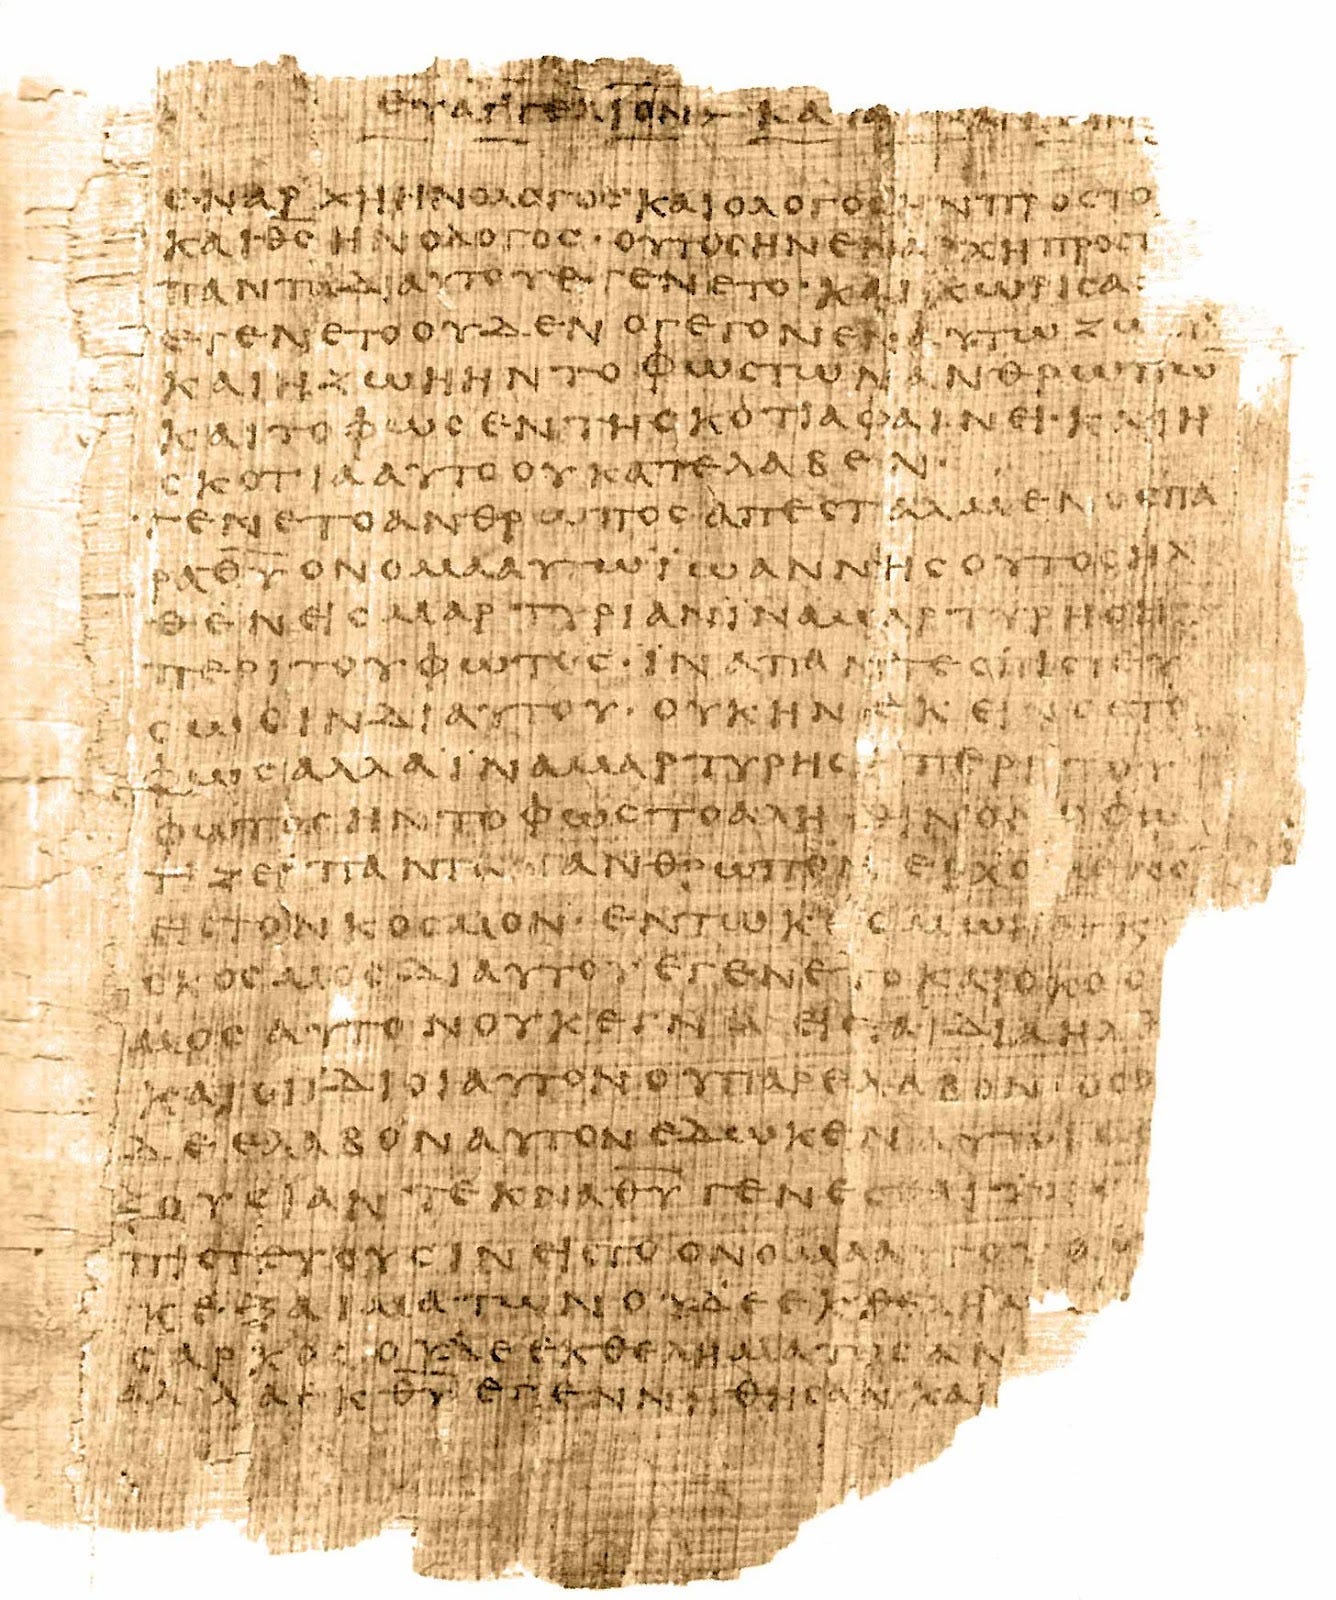 ευαγγελιον κατα
εναρχηηνολογοσκαιολογοσηνπροστο
καιθσηνολογοσ· ουτοσηνεναρχηπροστ
πανταδιαυτουεγενετο· καιχωρισα
εγενετοουδεν ογεγονενεναυτωζω
καιηζωηηντοφωστωνανθρωπω
καιτοφωσεντησκοτιαφαινει· καιη
σκοτιααυτοουκατελαβεν·
γενετοανθρωποσαπεσταλμενοσπα
ραθυονομααυτωϊωαννησουτοσηλ
θενεισμαρτυριανϊναμαρτυρηση
περιτουφωτοσ· ϊναπαντεσπιστευ
σωσινδιαυτου· ουκηνεκεινοστο
φωσαλλαϊναμαρτυρησηπεριτου
φωτοσηντοφωστοαληθινονοφω
τιζειπανταανθρωπονερχομενο
ειστονκοσμον· εντωκοσμωηνκ
οκοσμοσδιαυτουεγενετοκαιοκοσ
μοσαυτονουκεγνω εισταϊδιαηλθ
καιοιϊδιοιαυτονουπαρελαβον· οσο
δεελαβοναυτονεδωκεναυτοισε
ξουσιαν τεκναθυγενεσθαιτοισ
πιστευουσινειστοονομααυτου ο
κεξαιματωνουδεεκθελημα
σαρκοσουδεεκθεληματοσαν
αλλαεκθυεγεννηθησανκαι